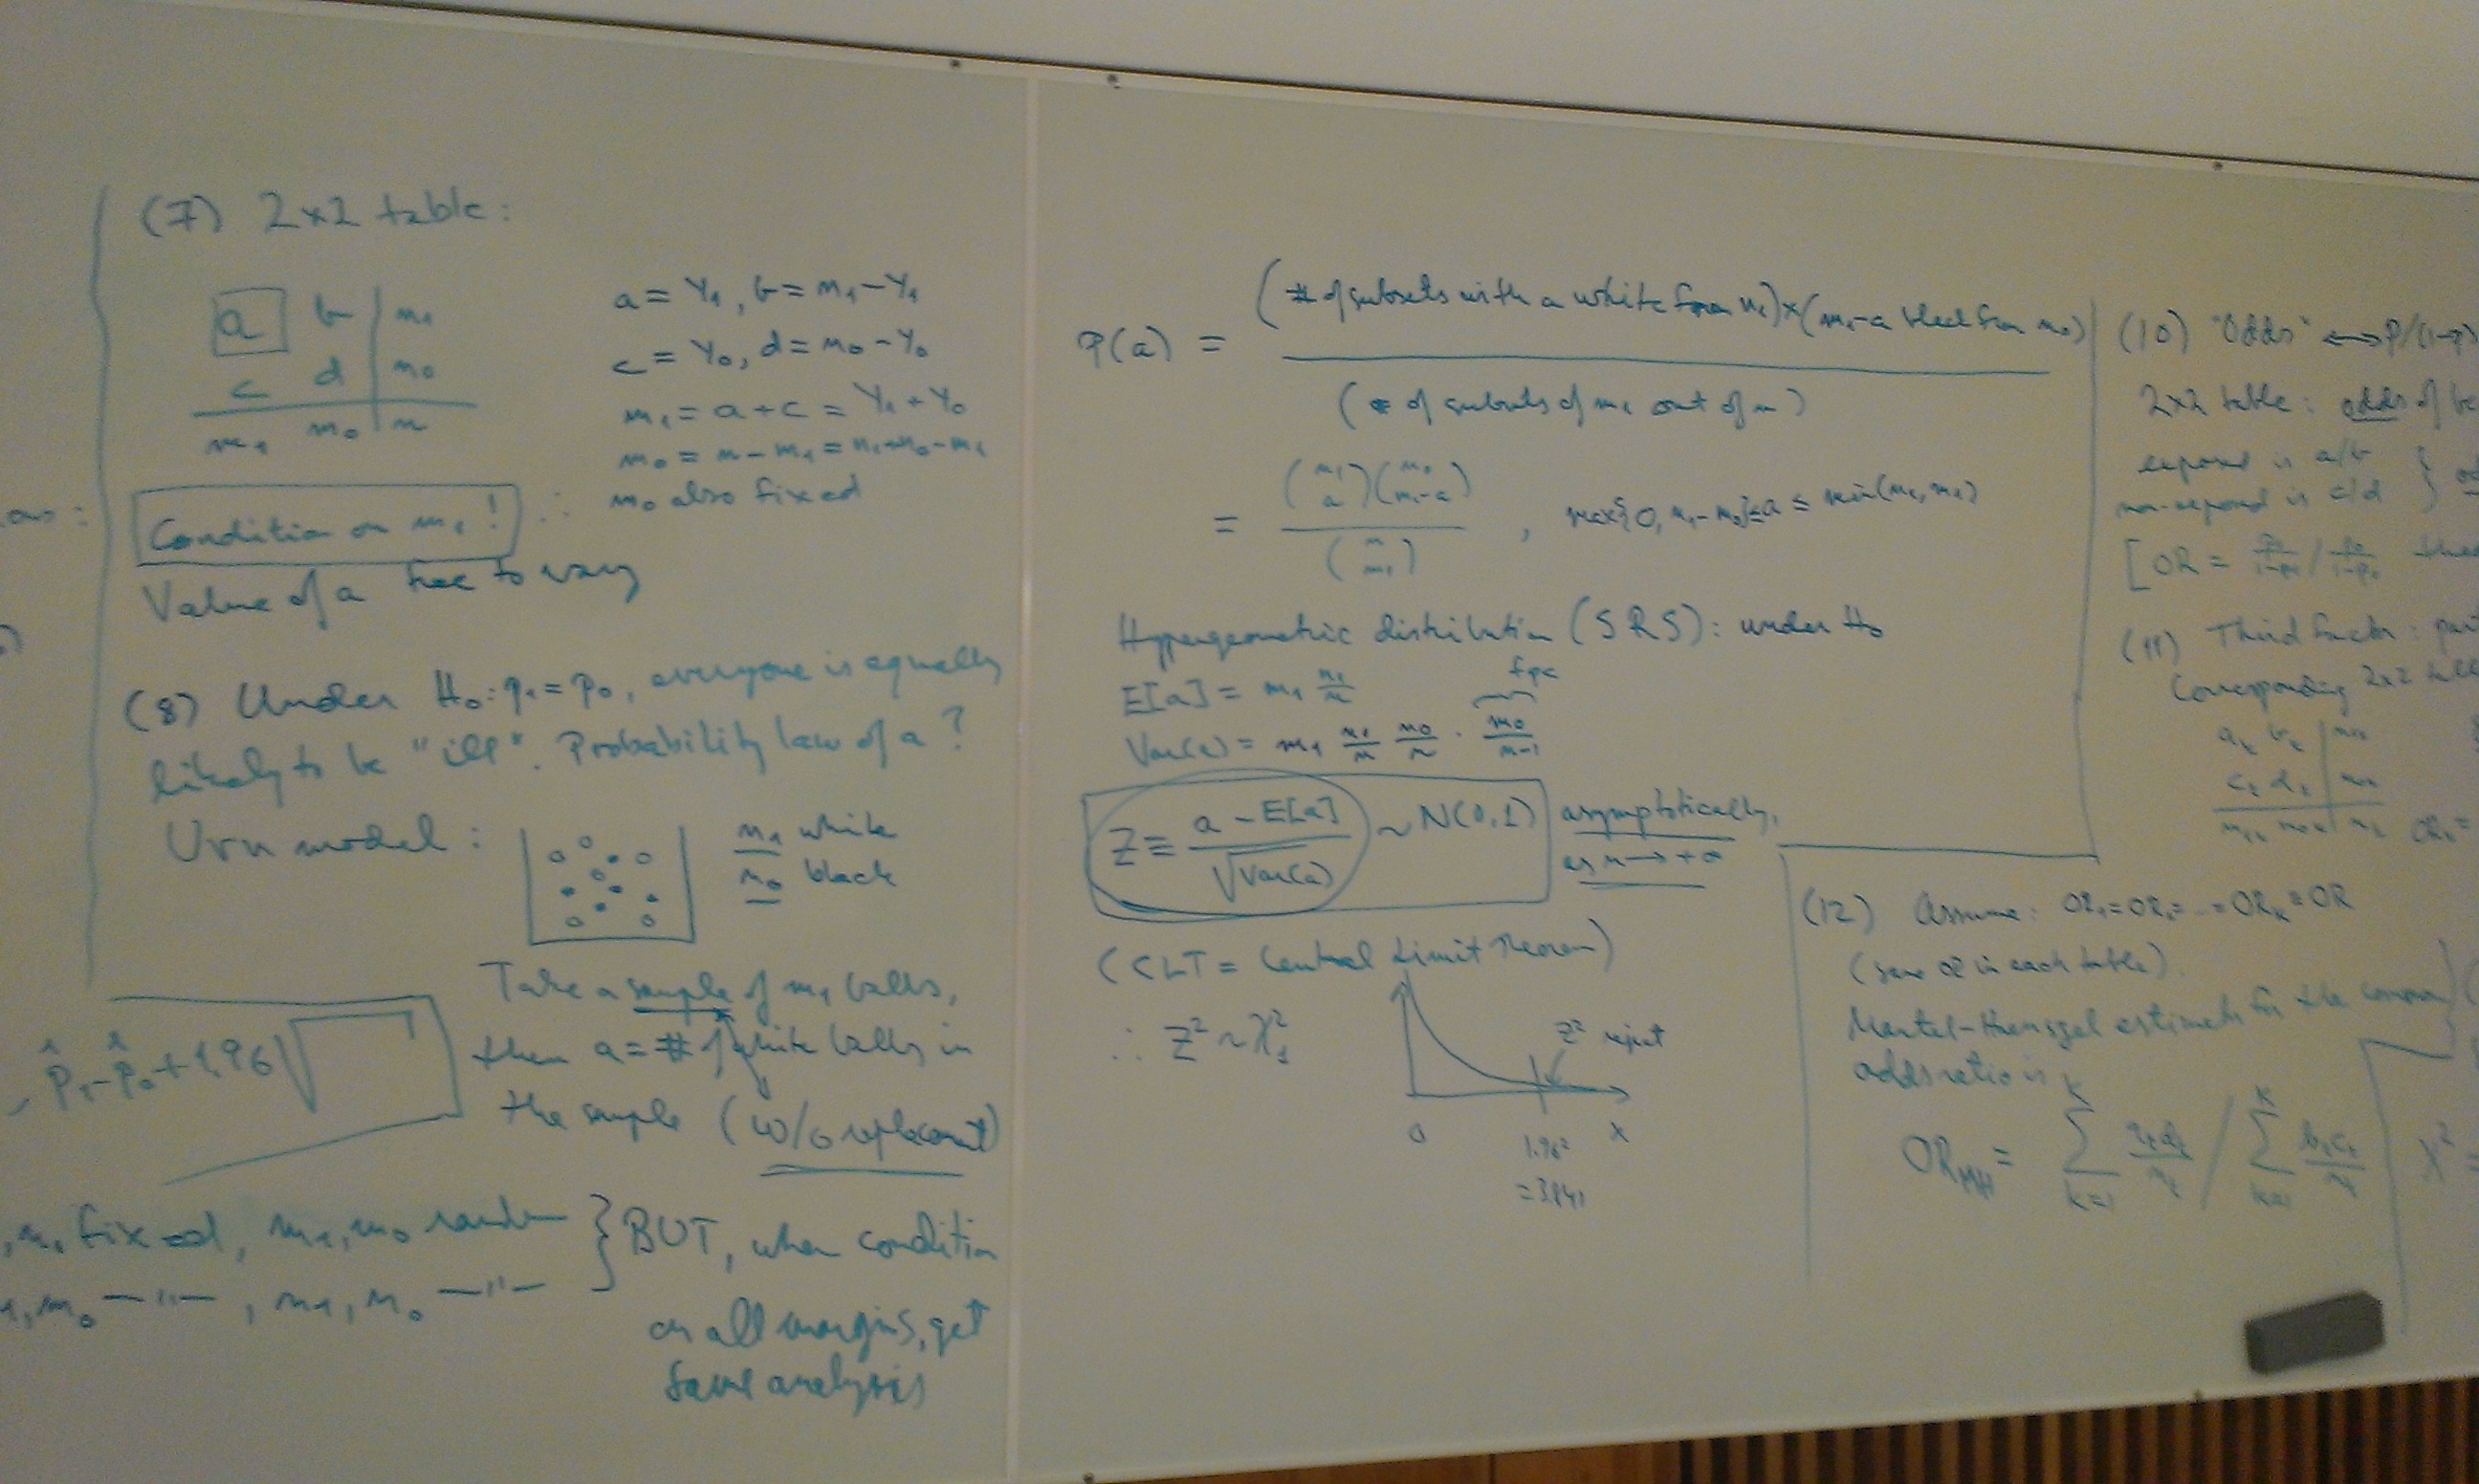 (7) 2x2 table:
a b | n₁
c d | n₀
m₁ m₀ | n
a = Y₁, b = n₁ - Y₁
c = Y₀, d = n₀ - Y₀
m₁ = a + c = Y₁ + Y₀
m₀ = n - m₁ = n₁ + n₀ - m₁
∴ m₀ also fixed
Condition on m₁ !
Value of a free to vary
(8) Under H₀: p₁ = p₀, everyone is equally
likely to be "ill". Probability law of a ?
Urn model :
n₁ white
n₀ black
Take a sample of m₁ balls,
then a = # of white balls in
the sample (w/o replacement)
p̂₁ - p̂₀ + 1,96 √
fixed, m₁, m₀ random } BUT, when condition
m₀ —"— , n₁, n₀ —"—
on all margins, get
same analysis
P(a) = (# of subsets with a white from n₁) x (m₁-a black from n₀)
(# of subsets of m₁ out of n)
= (n₁ a)(n₀ m₁-a) / (n m₁) , max{0, m₁ - n₀} ≤ a ≤ min(m₁, n₁)
Hypergeometric distribution (SRS): under H₀
fpc
E[a] = m₁ n₁/n
Var(a) = m₁ n₁/n n₀/n · m₀/n-1
Z ≡ a - E[a] / √Var(a) ~ N(0,1) asymptotically,
as n → +∞
(CLT = Central Limit Theorem)
∴ Z² ~ χ²₁
Z² reject
0 1.96² x
= 3.841
(10) "Odds" ↔ p/(1-p)
2x2 table: odds of
exposed is a/b }
non-exposed is c/d
[OR = p₁/1-p₁ / p₀/1-p₀
(11) Third factor:
Corresponding 2x2
aₖ bₖ | n₁ₖ
cₖ dₖ | n₀ₖ
m₁ₖ m₀ₖ | nₖ ORₖ =
(12) Assume: OR₁ = OR₂ = ... = ORₖ = OR
(same OR in each table)
Mantel-Haenszel estimate for the common
odds ratio is
OR_MH = Σ_{k=1}^{K} aₖdₖ/nₖ / Σ_{k=1}^{K} bₖcₖ/nₖ
X² =